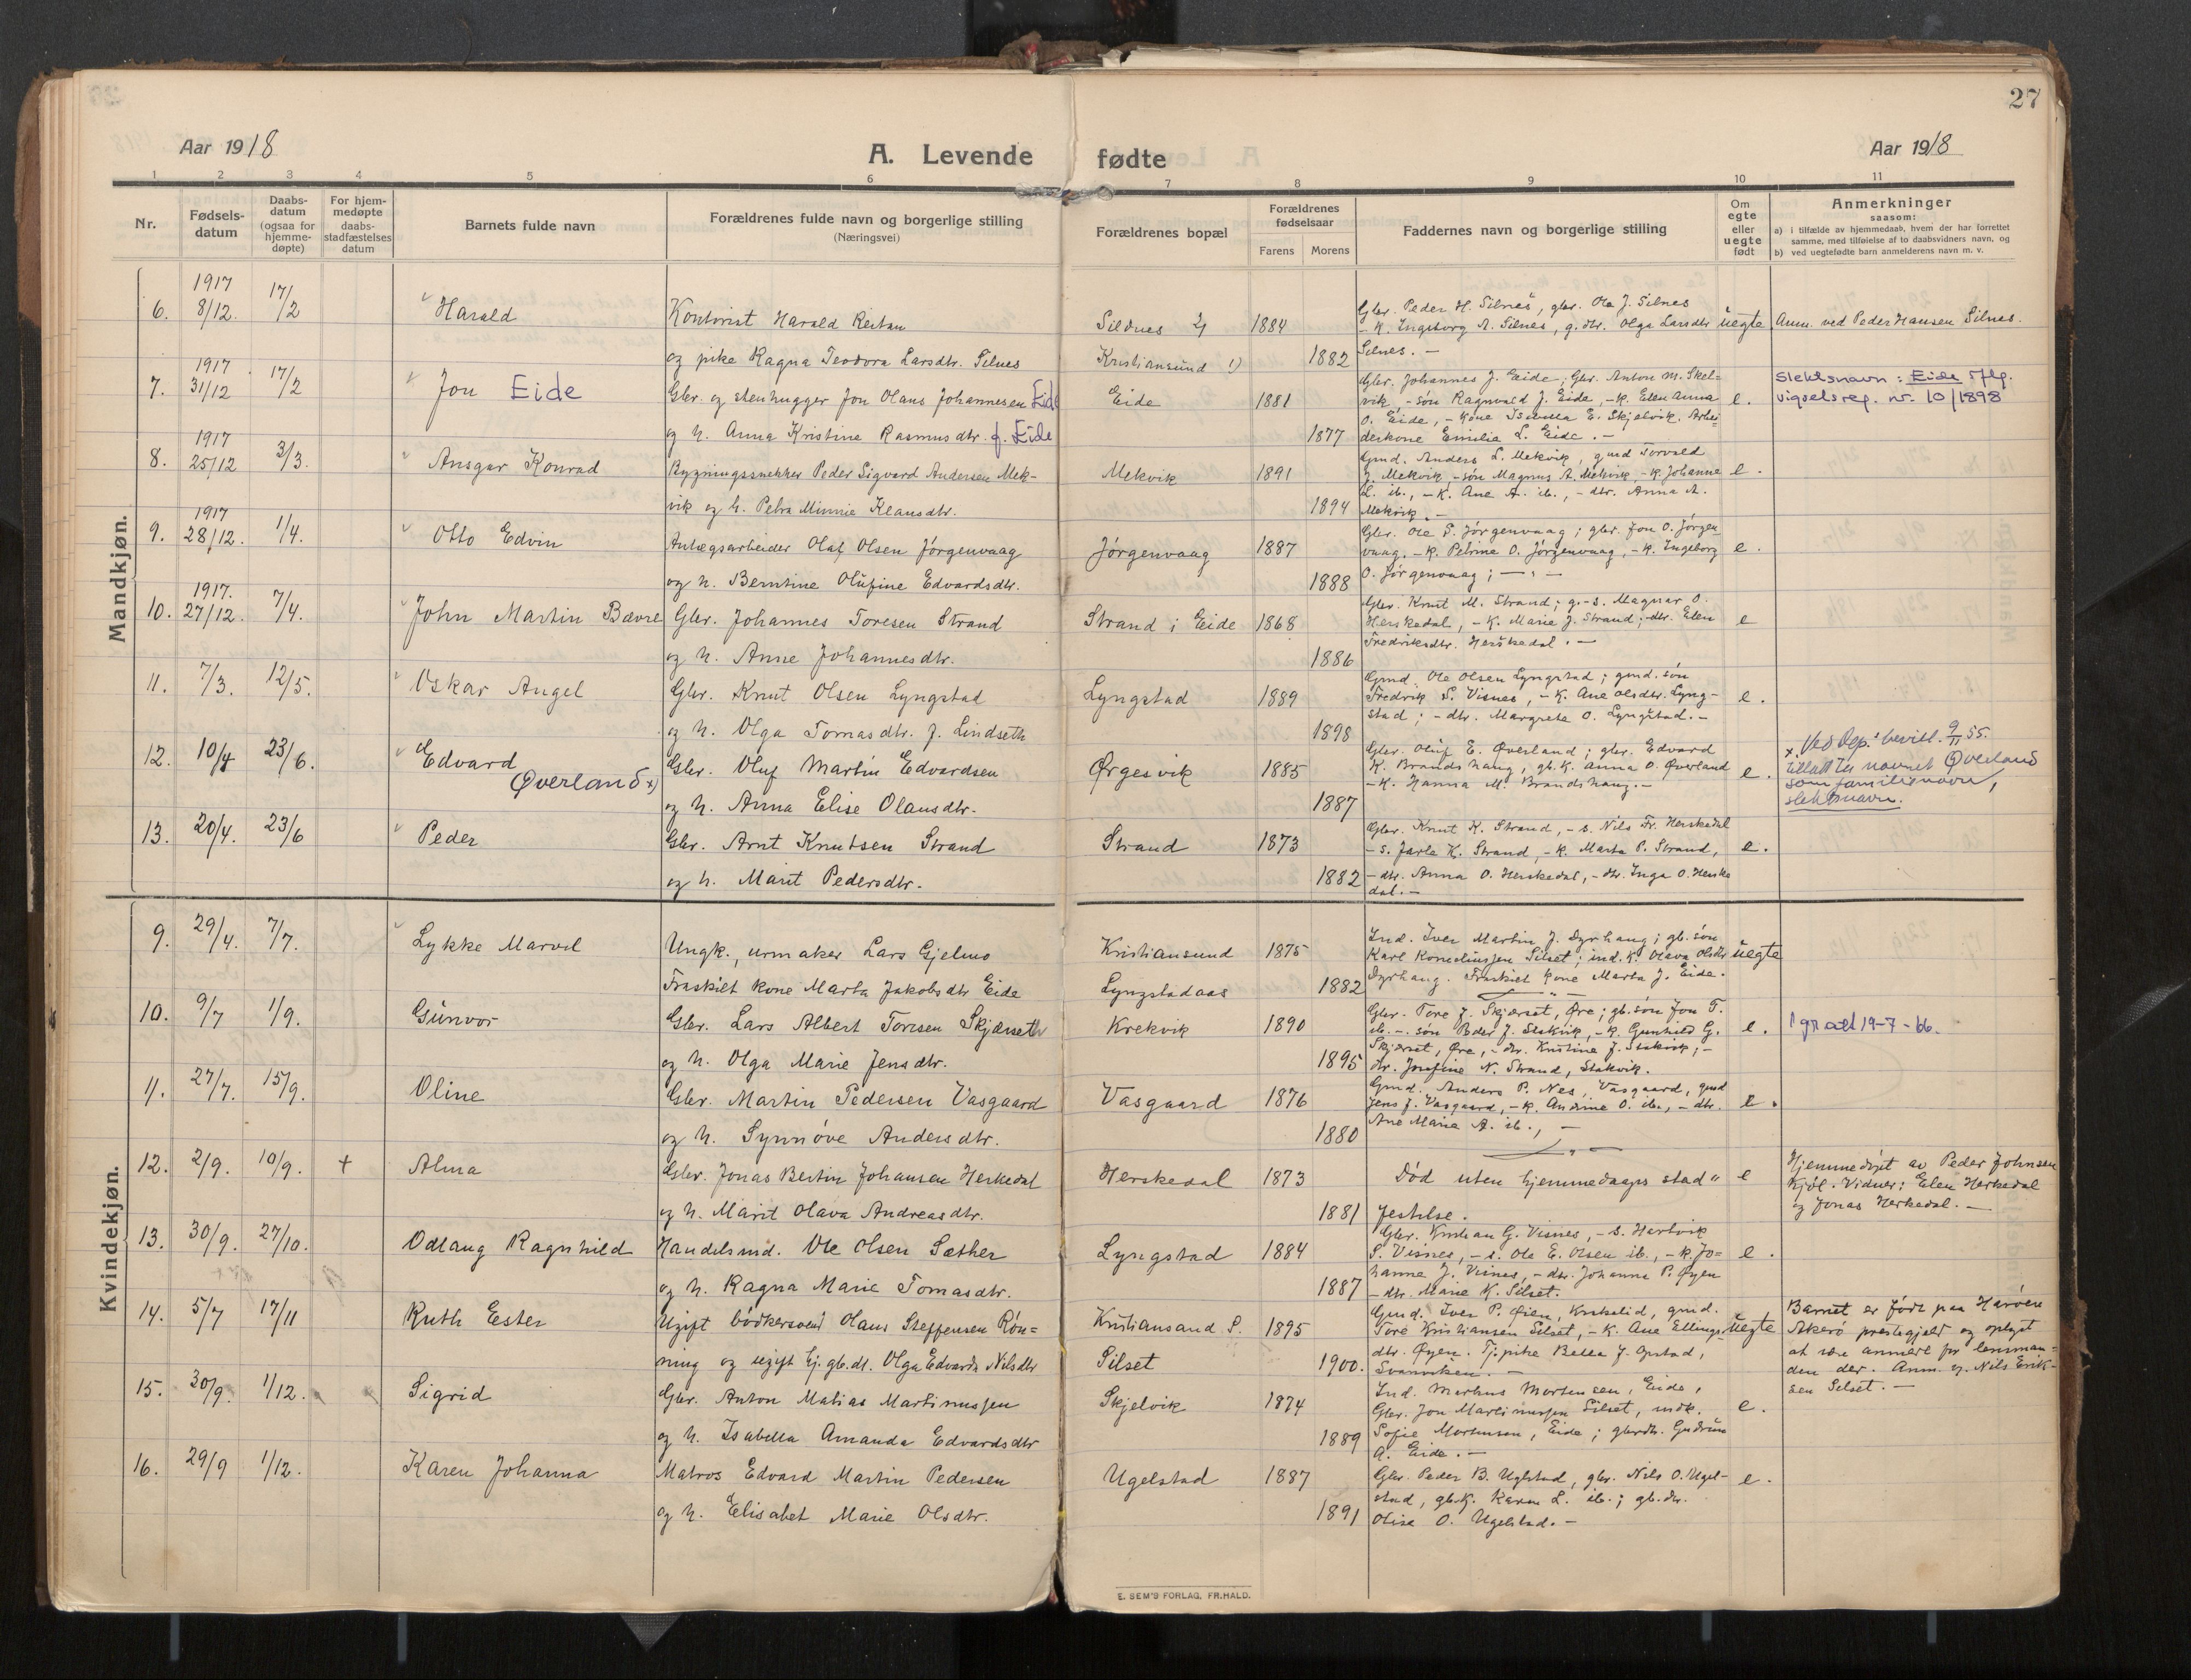 27
Aar 1918
A. Levende fødte
Aar 1918
1 2 3 4 5 6 7 8 9 10 11
Nr.
Fødsels-
datum
Daabs-
datum
(ogsaa for
hjemme-
døpte)
For hjem-
medøpte
daabs-
stadfæstelses
datum
Barnets fulde navn
Forældrenes fulde navn og borgerlige stilling
(Næringsvei)
Forældrenes bopæl
Forældrenes
fødselsaar
Farens Morens
Faddernes navn og borgerlige stilling
Om
egte
eller
uegte
født
Anmerkninger
saasom:
a) i tilfælde av hjemmedaab, hvem der har forrettet
samme, med tilføielse af to daabsvidners navn, og
b) ved uegtefødte barn anmelderens navn m. v.
Mandkjøn.
6. 1917 8/12. 17/2 Harald
Kontorist Harald Restan
og pike Ragna Teodora Larsdtr. Silnes
Sildnes
Kristiansund 1)
1884
1882
Gbr. Peder H. Silnes, gbr. Ola J. Silnes
- k. Ingeborg A. Silnes, g. dtr. Olga Larsdtr
Silnes. -
uegte
Anm. ved Peder Hansen Silnes.
7. 1917 31/12 17/2 Jon Eide
Gbr. og stenhugger Jon Olaus Johannesen Eide
og h. Anna Kristine Rasmusdtr. f. Eide
Eide
1881
1877
Gbr. Johannes J. Eide; Gbr. Anton M. Skel=
vik, - søn Ragnvald J. Eide, - k. Elen Anna
O. Eide, - kone Isabella E. Skjelvik. Arbei
derkone Emilie L. Eide. -
e.
Slektsnavn: Eide iflg.
vigselsreg. nr. 10/1898
8. 1917 25/12 3/3. Ansgar Konrad
Bygningssnekker Peder Sigvard Andersen Mek-
vik og h. Petra Minnie Klausdtr.
Mekvik
1891
1894
Gmd. Anders L. Mekvik, gmd Torvald
J. Mekvik, - søn Magnus A. Mekvik, - k. Johanne
L. ib., - k. Ane A. ib., - dtr. Anna A.
Mekvik. -
e.
9. 1917 28/12. 1/4. Otto Edvin
Anlægsarbeider Olaf Olsen Jørgenvaag
og h. Berntine Olufine Edvardsdtr.
Jørgenvaag
1887
1888
Gbr. Ole P. Jørgenvaag; gbr. Jon O. Jørgen-
vaag. - k. Petrine O. Jørgenvaag, - k. Ingeborg
O. Jørgenvaag; -
e.
10. 1917. 27/12. 7/4. John Martin Bævre
Gbr. Johannes Toresen Strand
og h. Anne Johannesdtr.
Strand i Eide
1868
1886
Gbr. Knut M. Strand; g.-s. Magnar O.
Herskedal, - k. Marie J. Strand; - dtr. Elen
Fredriksdtr. Herskedal. -
e
11. 7/3. 12/5. Oskar Angel
Gbr. Knut Olsen Lyngstad
og h. Olga Tomasdtr. f. Lindseth
Lyngstad
1889
1898
Gmd. Ole Olsen Lyngstad; gmd. søn
Fredrik S. Visnes, - k. Ane Olsdtr. Lyng-
stad; - dtr. Margrete O. Lyngstad. -
e.
12. 10/4 23/6. Edvard
Øverland x)
Gbr. Oluf Martin Edvardsen
og h. Anna Elise Olausdtr.
Ørgesvik
1885
1887
Gbr. Oluf E. Øverland; gbr. Edvard
K. Brandshaug, gb. k. Anna O. Øverland
- k. Hanna M. Brandshaug. -
e.
x Ved Dep.' bevill. 9/11 55.
tillatt ta navnet Øverland
som familienavn,
slektsnavn.
13. 20/4. 23/6 Peder
Gbr. Arnt Knutsen Strand
og h. Marit Pedersdtr.
Strand
1873
1882
Gbr. Knut K. Strand, - s. Nils Fr. Herskedal
- s. Jarle K. Strand, - k. Marta P. Strand,
- dtr. Anna O. Herskedal, - dtr. Inga O. Herske
dal. -
e.
Kvindekjøn.
9. 29/4. 7/7. Lykke Marvel
Ungk., urmaker Lars Gjelmo
Fraskilt kone Marta Jakobsdtr Eide
Kristiansund
Lyngstadaas
1875
1882
Ind. Iver Martin J. Dyrhaug; gb. søn
Karl Korneliussen Silset; ind. k. Olava Olsdtr
Dyrhaug. Fraskilt kone Marta J. Eide.
uegte
10. 9/7 1/9. Gunvor
Gbr. Lars Albert Toresen Skjærseth
og h. Olga Marie Jensdtr.
Krekvik
1890
1895
Gbr. Tore J. Skjerset, Øre; gb. søn Jon T.
ib. -. søn Peder J. Stokvik, - k. Gunhild G.
Skjerset, Øre, - dtr. Kristine J. Stokvik, -
dtr. Josefine N. Strand, Stokvik.
e.
19-7-66.
11. 27/7. 15/9. Oline
Gbr. Martin Pedersen Vasgaard
og h. Synnøve Andersdtr.
Vasgaard
1876
1880
Gmd. Anders P. Nes, Vasgaard, gmd
Jens J. Vasgaard, - k. Andrine O. ib., - dtr.
Ane Marie A. ib., -
e.
12. 2/9. 10/9. + Alma
Gbr. Jonas Bertin Johansen Herkedal
og h. Marit Olava Andreasdtr.
Herskedal
1873
1881
Død uten hjemmedaaps stad"
festelse.
e
Hjemmedøpt av Peder Johnsen
Kjøl. Vidner: Elen Herkedal
og Jonas Herkedal. -
13. 30/9. 27/10. Odlaug Ragnhild
Handelsmd. Ole Olsen Sæther
og h. Ragna Marie Tomasdtr.
Lyngstad
1884
1887
Gbr. Kristian G. Visnes, - s. Hartvik
S. Visnes, - s. Ole E. Olsen ib., - k. Jo=
hanne J. Visnes, - dtr. Johanna P. Øyen
- dtr. Marie K. Silset.
e.
14. 5/7 17/11 Ruth Ester
Ugift bødkersvend Hans Steffensen Røn=
ning og ugift Ej. gb. dt. Olga Edvarda Nilsdtr
Kristiansand S.
Silset
1895
1900.
Gmd. Iver P. Øien, gmd.
Tore Kristiansen Silset, - k. Ane Ellings-
dtr. Øyen. Tj. pike Bella J. Opstad,
Svanviken. -
uegte
Barnet er født paa Harøen
Akerø prestegjeld og oplyst
at være anmeldt for lensman=
den der. Anm. v. Nils Erik-
sen Silset. -
15. 30/9. 1/12. Sigrid
Gbr. Anton Matias Martinussen
og h. Isabella Amanda Edvardsdtr
Skjelvik
1874
1889
Ind. Markus Mortensen, Eide,
Gbr. Jon Martinussen Silset, indk.
Sofie Mortensen, Eide; gbrdtr. Gudrun
A. Eide. -
e.
16. 29/9 1/12. Karen Johanna
Matros Edvard Martin Pedersen
og h. Elisabet Marie Olsdtr.
Ugelstad
1887
1891
Gbr. Peder B. Uglstad, gbr. Nils O. Ugel-
stad, gb. k. Karen L. ib.; gb. dtr.
Olise O. Ugelstad. -
e.
E. SEM'S FORLAG, FR.HALD.